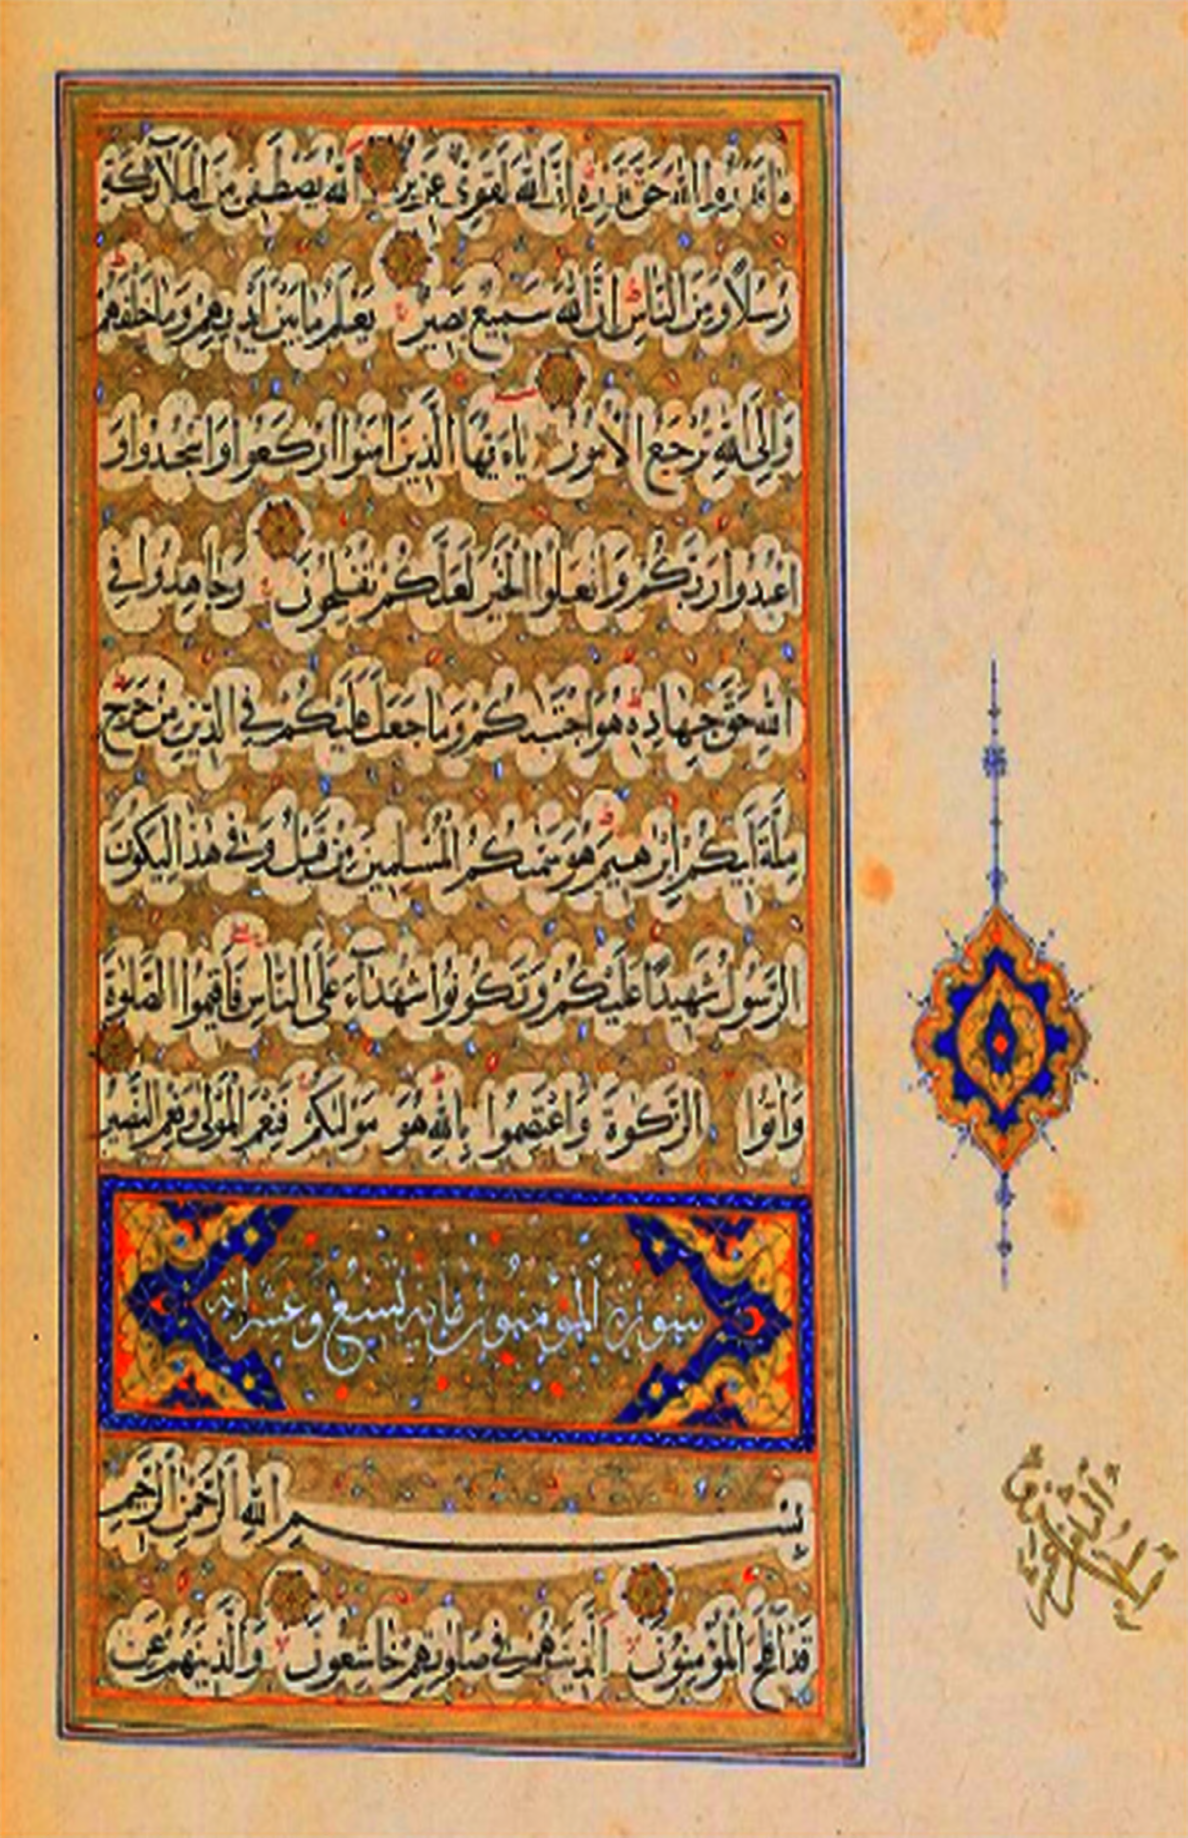 ما قدروا الله حق قدره ان الله لقوی عزیز الله یصطفی من الملآئکة
رسلا و من الناس ان الله سمیع بصیر یعلم ما بین ایدیهم و ما خلفهم
و الی الله ترجع الامور یاءیها الذین امنوا ارکعوا و اسجدوا و
اعبدوا ربکم و افعلوا الخیر لعلکم تفلحون و جاهدوا فی
الله حق جهاده هو اجتبىکم و ما جعل علیکم فی الدین من حرج
ملة ابیکم ابرهیم هو سمىکم المسلمین من قبل و فی هذا لیکون
الرسول شهیدا علیکم و تکونوا شهدآء علی الناس فاقیموا الصلوة
و اتوا الزکوة و اعتصموا بالله هو مولىکم فنعم المولی و نعم النصیر
سورة المؤمنون مایه تسع و عشر ایه
بسم الله الرحمن الرحیم
قد افلح المؤمنون الذینهم فی صلوتهم خاشعون و الذینهم عن